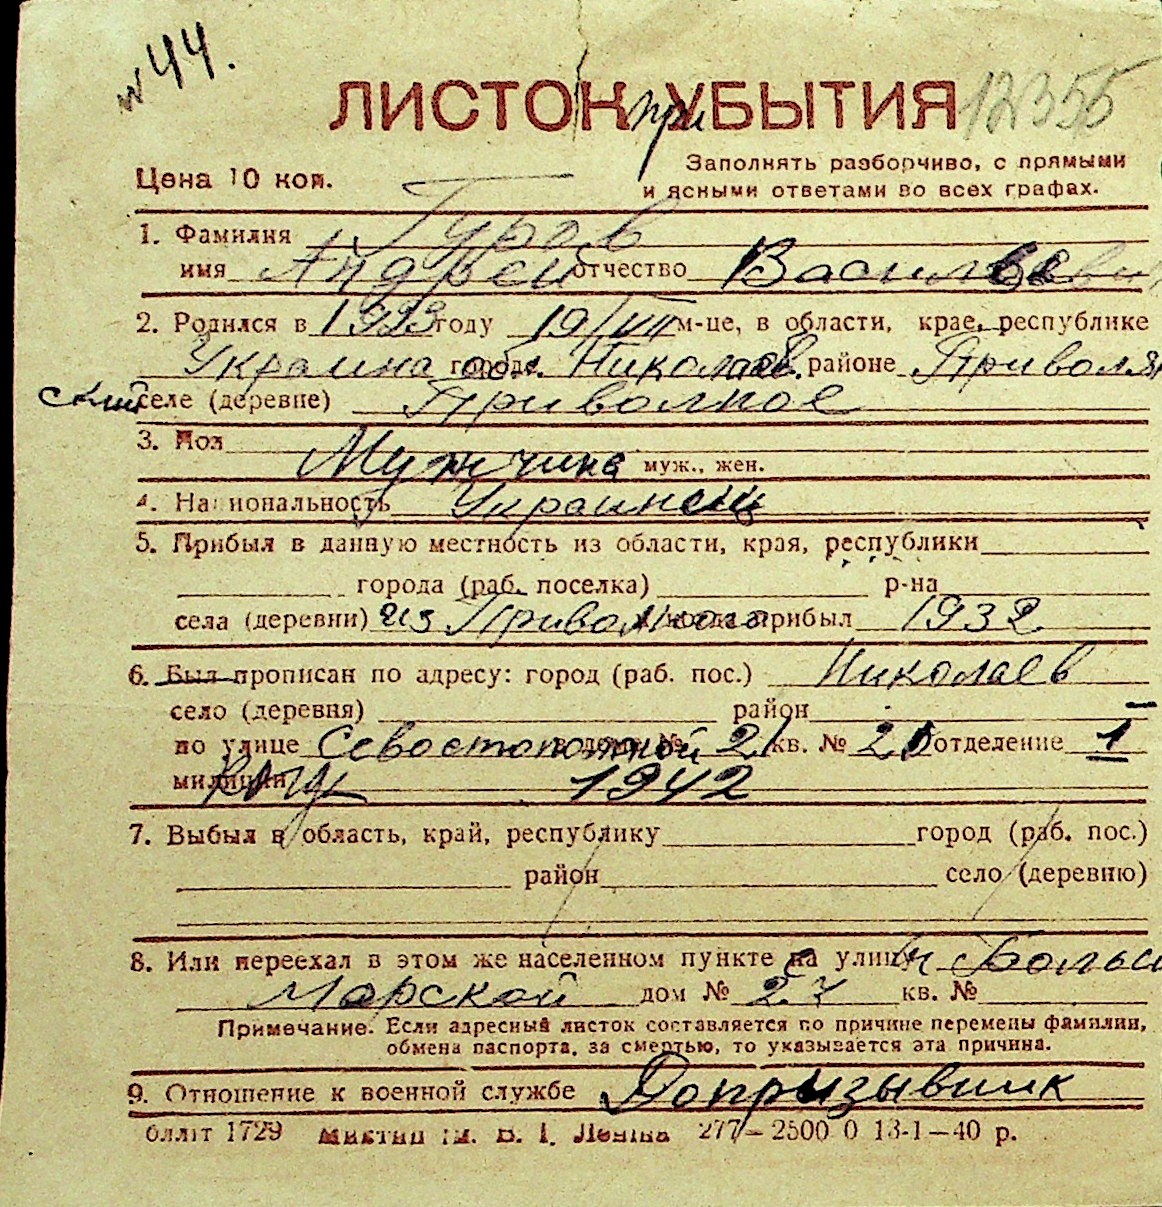 № 44.
ЛИСТОК при УБЫТИЯ 12355
Цена 10 коп.
Заполнять разборчиво, с прямыми
и ясными ответами во всех графах.
1. Фамилия Гуров
имя Андрей отчество Васильеви
2. Родился в 1923 году 19/VII м-це, в области, крае, республике
Украина обл. города Николаев. районе Приволь
ский селе (деревне) Приволное
3. Пол Мужчина муж., жен.
4. Национальность Украинец
5. Прибыл в данную местность из области, края, республики
города (раб. поселка) р-на
села (деревни) из Приволного когда прибыл 1932
6. Был прописан по адресу: город (раб. пос.) Николаев
село (деревня) район
по улице Севостополской в доме № 21 кв. № 20 отделение 1
милиции 1942
7. Выбыл в область, край, республику город (раб. пос.)
район село (деревню)
8. Или переехал в этом же населенном пункте на улицу Больш
Марской дом № 27 кв. №
Примечание. Если адресный листок составляется по причине перемены фамилии,
обмена паспорта, за смертью, то указывается эта причина.
9. Отношение к военной службе Допризывник
1729 277—2500 0 13-1—40 р.